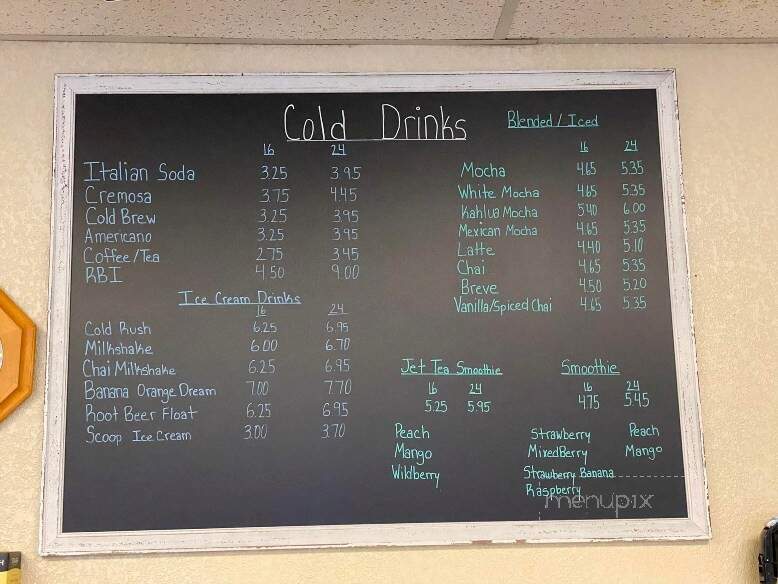 Cold Drinks
16 24
Italian Soda 3.25 3.95
Cremosa 3.75 4.45
Cold Brew 3.25 3.95
Americano 3.25 3.95
Coffee/Tea 2.75 3.45
RBI 4.50 9.00
Ice Cream Drinks
16 24
Cold Rush 6.25 6.95
Milkshake 6.00 6.70
Chai Milkshake 6.25 6.95
Banana Orange Dream 7.00 7.70
Root Beer Float 6.25 6.95
Scoop Ice Cream 3.00 3.70
Blended / Iced
16 24
Mocha 4.65 5.35
White Mocha 4.65 5.35
Kahlua Mocha 5.40 6.00
Mexican Mocha 4.65 5.35
Latte 4.40 5.10
Chai 4.65 5.35
Breve 4.50 5.20
Vanilla/Spiced Chai 4.65 5.35
Jet Tea Smoothie
16 24
5.25 5.95
Peach
Mango
Wildberry
Smoothie
16 24
4.75 5.45
Strawberry Peach
MixedBerry Mango
Strawberry Banana
Raspberry
menupix